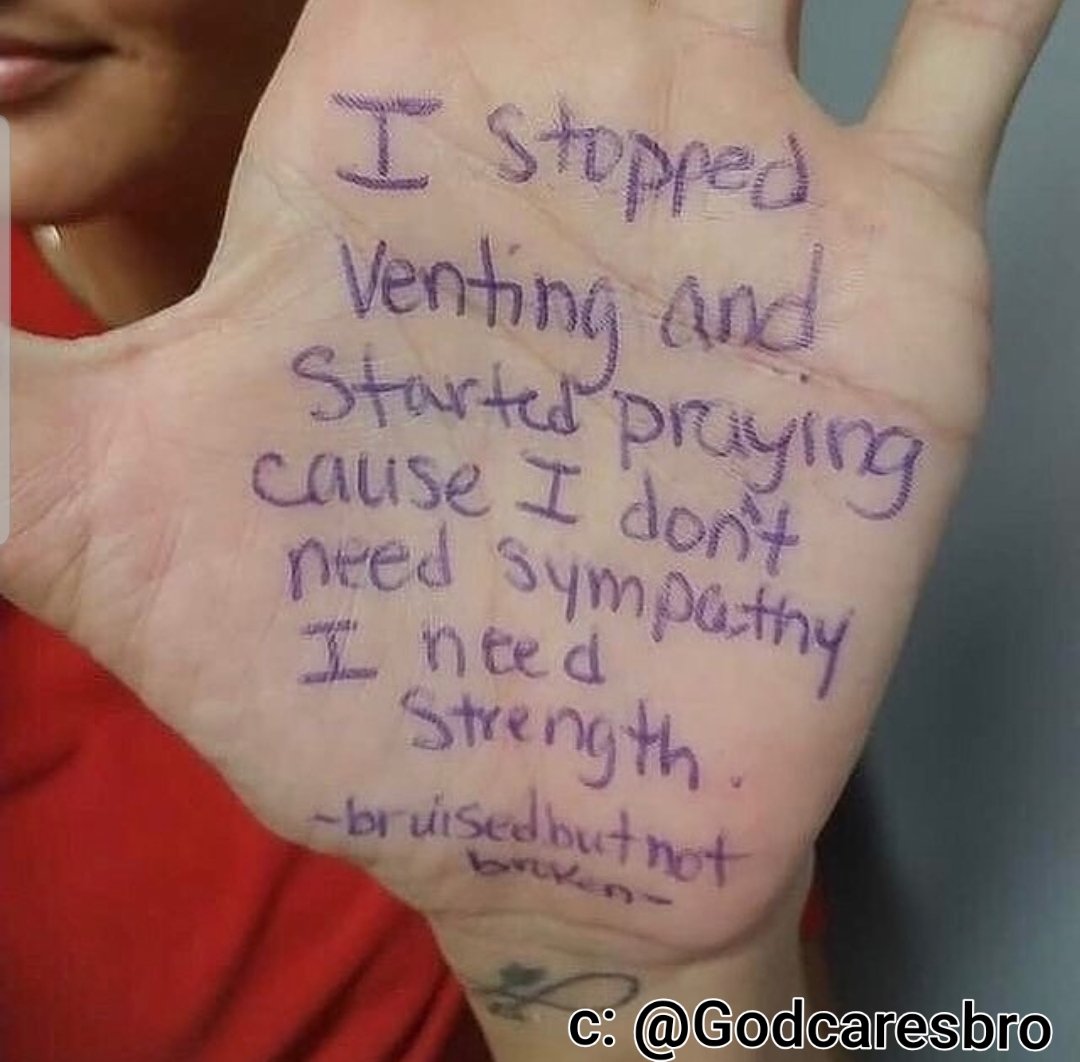 I stopped
Venting and
Started praying
cause I don't
need sympathy
I need
Strength.
-bruisedbutnot
broken-
c: @Godcaresbro